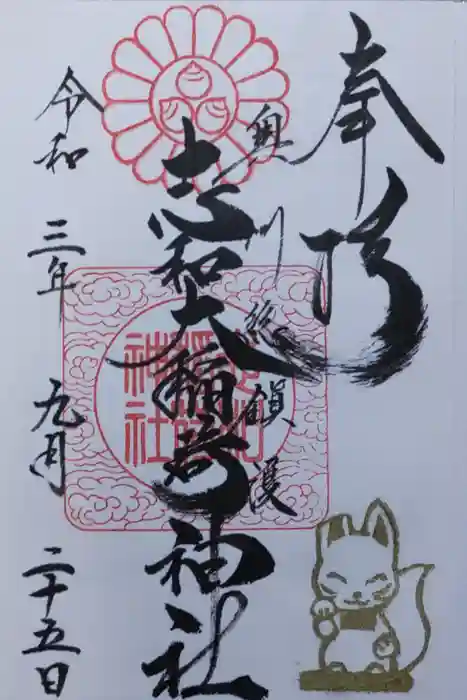 奉拝
奥州総鎮護
志和大稲荷神社
令和三年九月二十五日